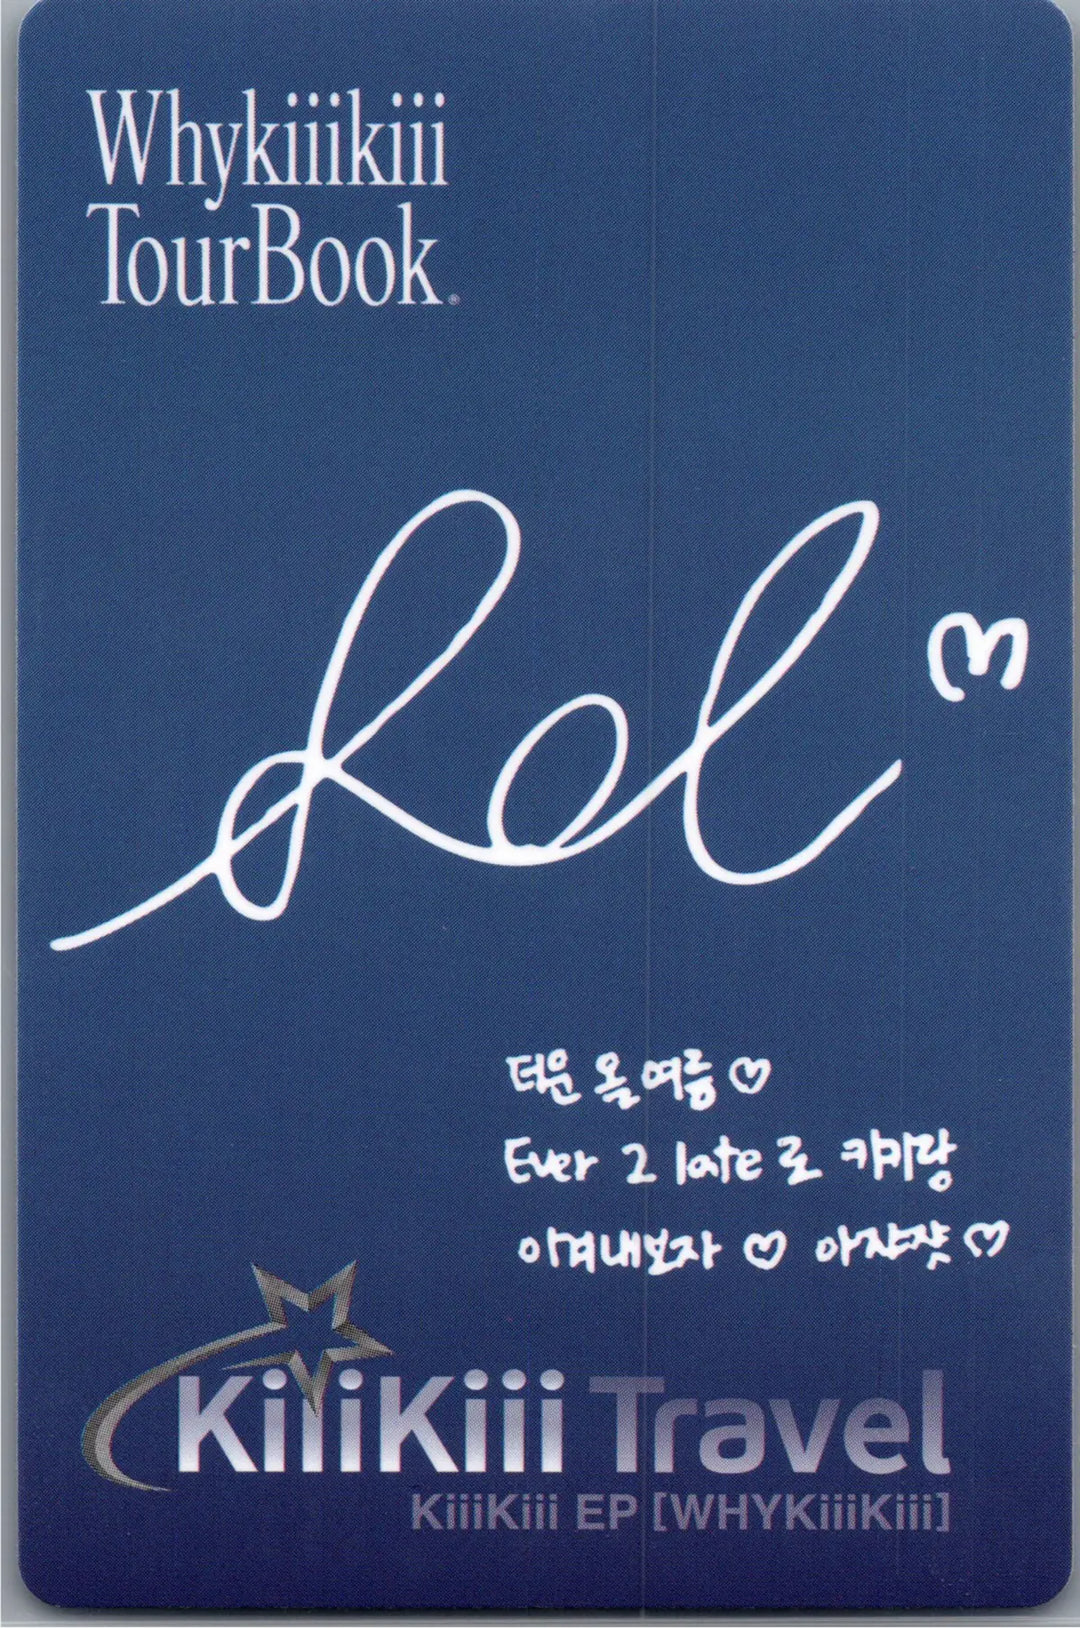 Whykiiikiii
TourBook®
더운 올 여름 ♡
Ever 2 late 로
이겨내보자 ♡ 아쟈쟛 ♡
KiiiKiii Travel
KiiiKiii EP [WHYKiiiKiii]